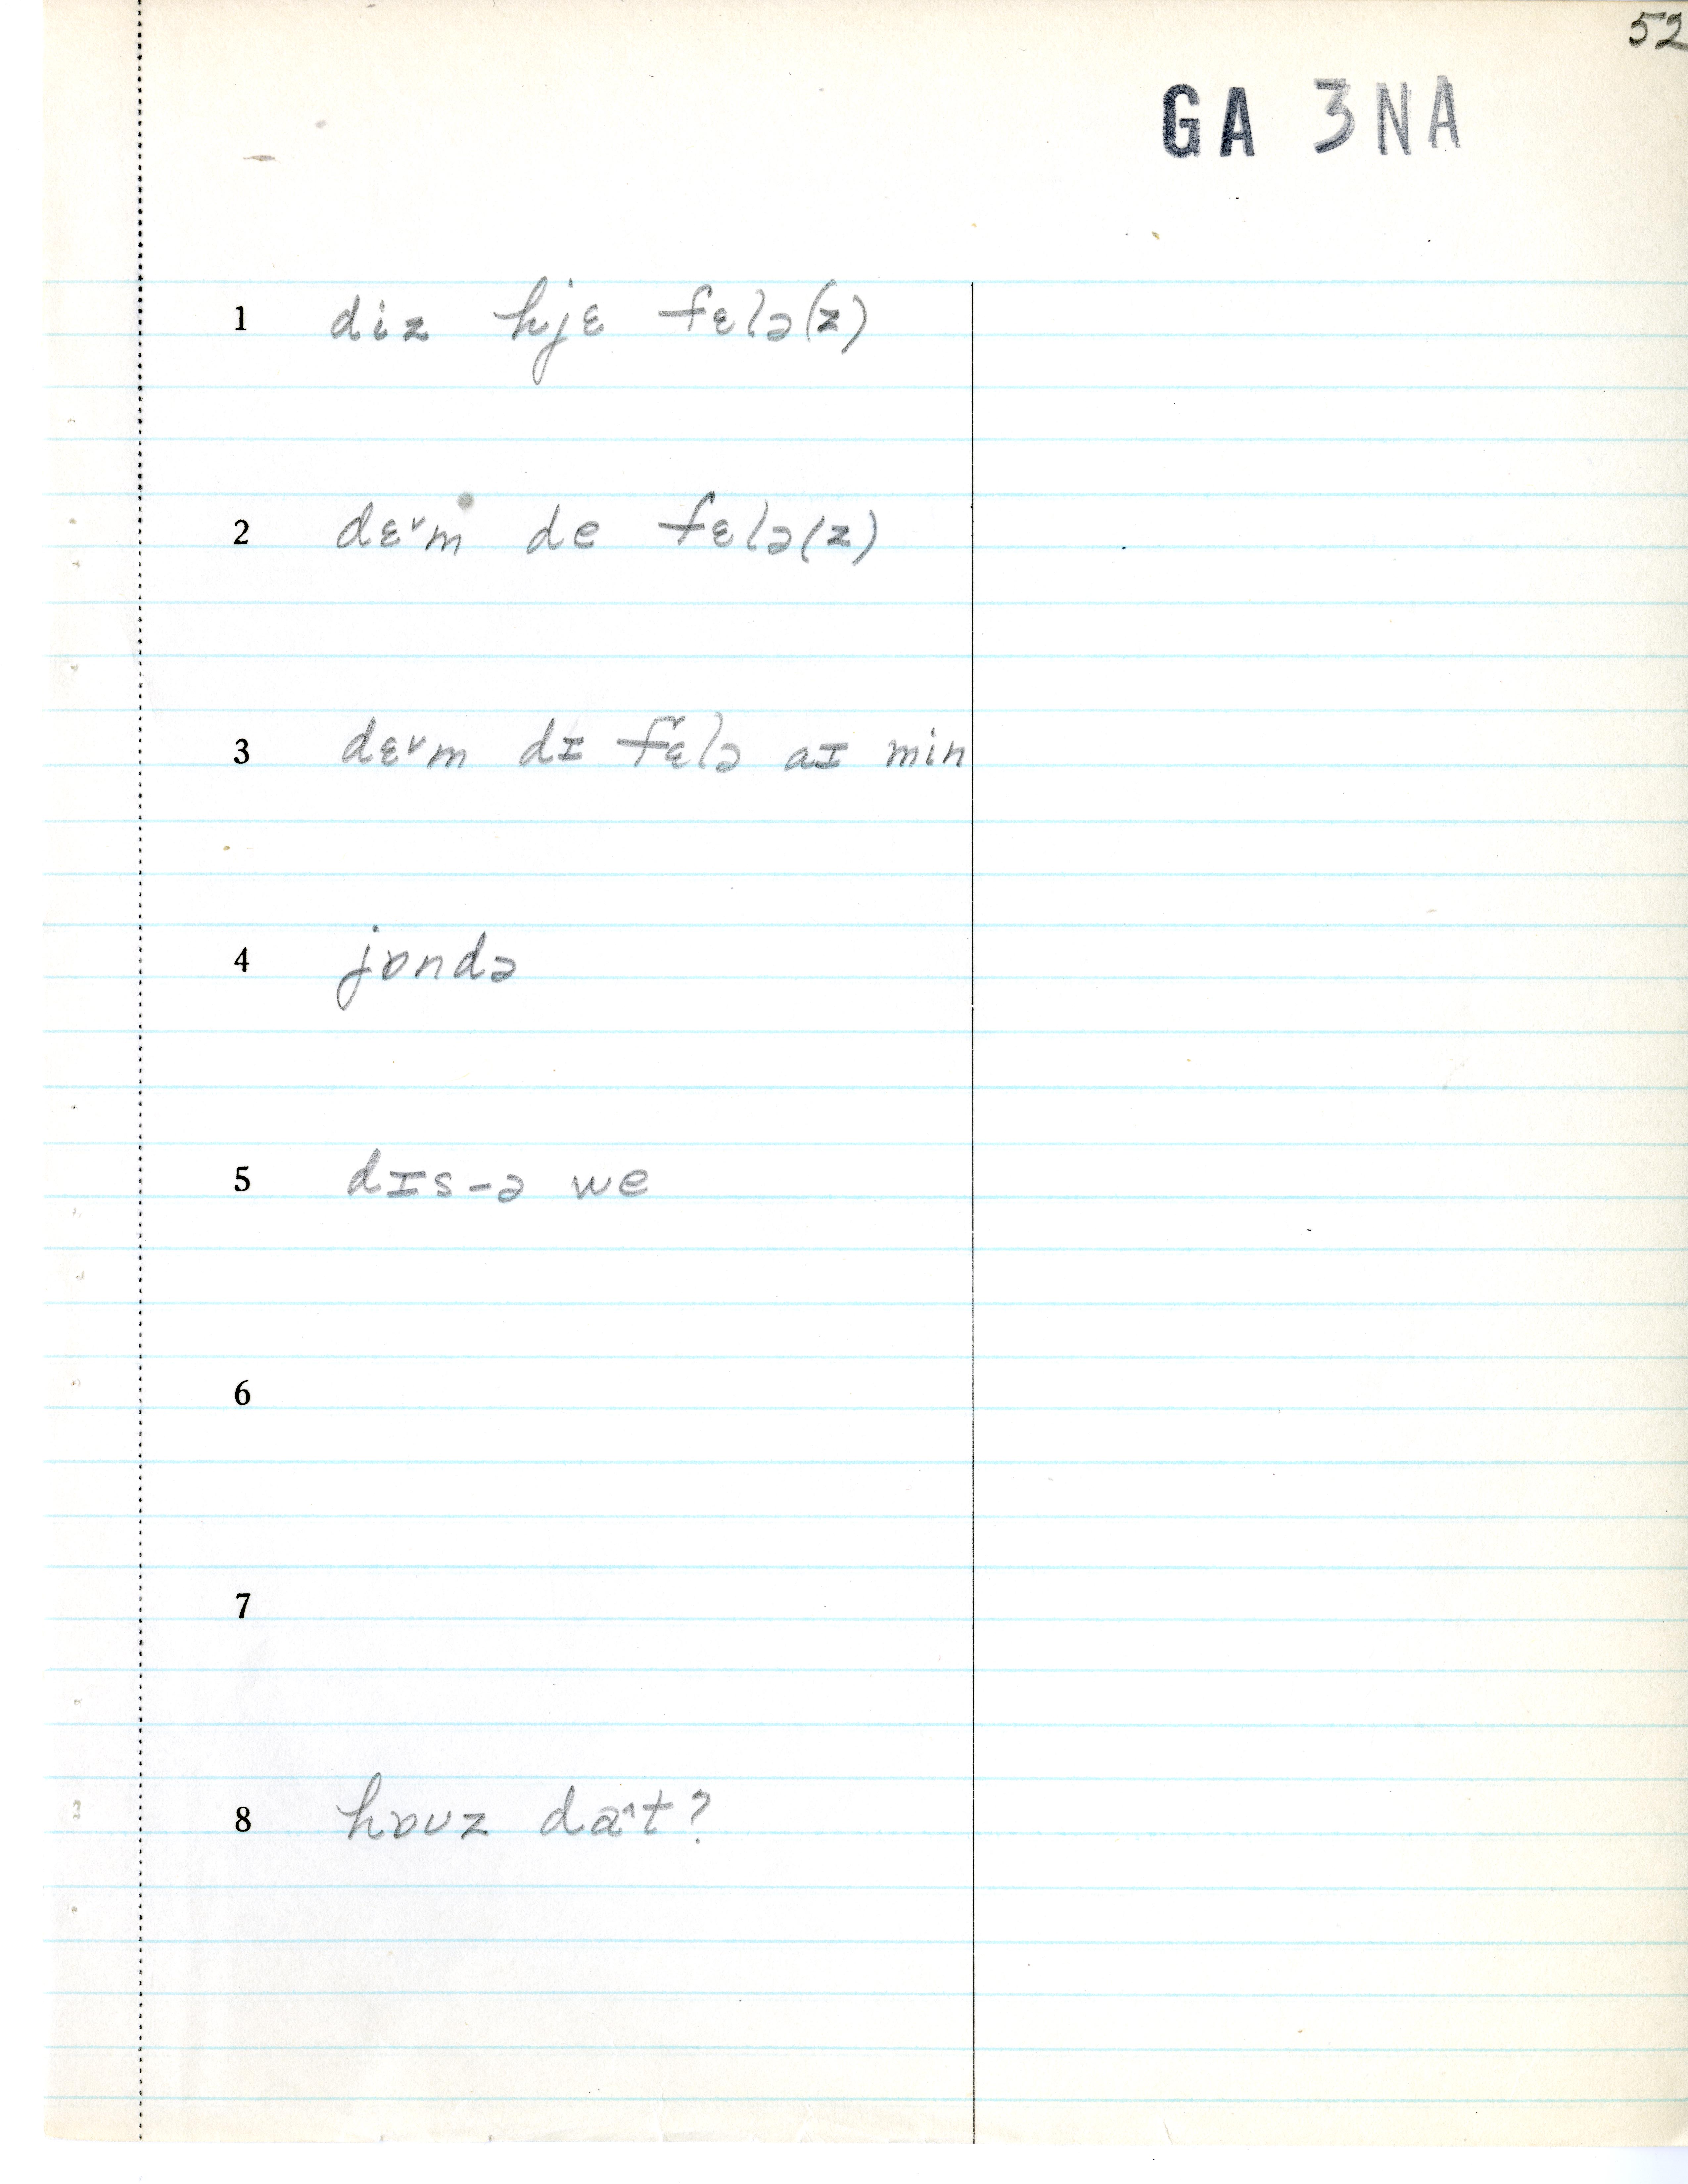 52
GA 3NA
1 diz hjɛ fɛlə(z)
2 dɛ˅m de fɛlə(z)
3 dɛ˅m dɪ fɛlə aɪ min
4 jɒndə
5 dɪs-ə we
6
7
8 hɒʊz da^t?